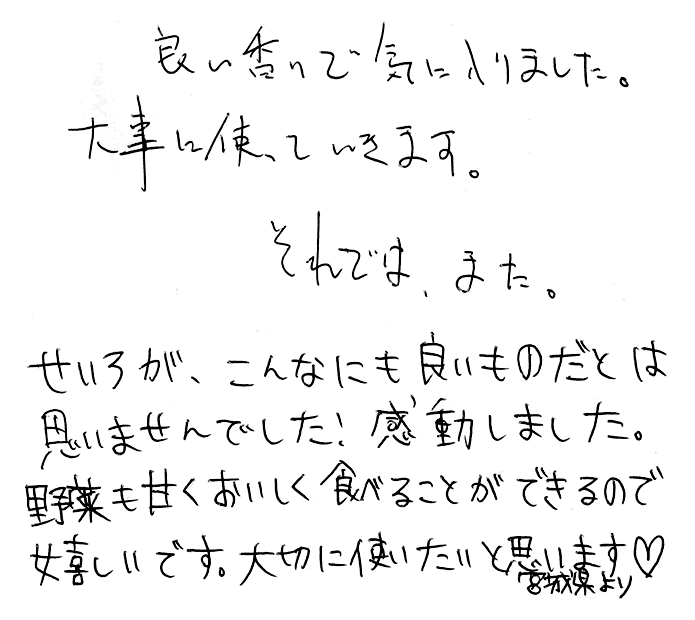 良い香りで気に入りました。
大事に使っていきます。
それでは、また。
せいろが、こんなにも良いものだとは
思いませんでした！感動しました。
野菜も甘くおいしく食べることができるので
嬉しいです。大切に使いたいと思います♡
宮城県より